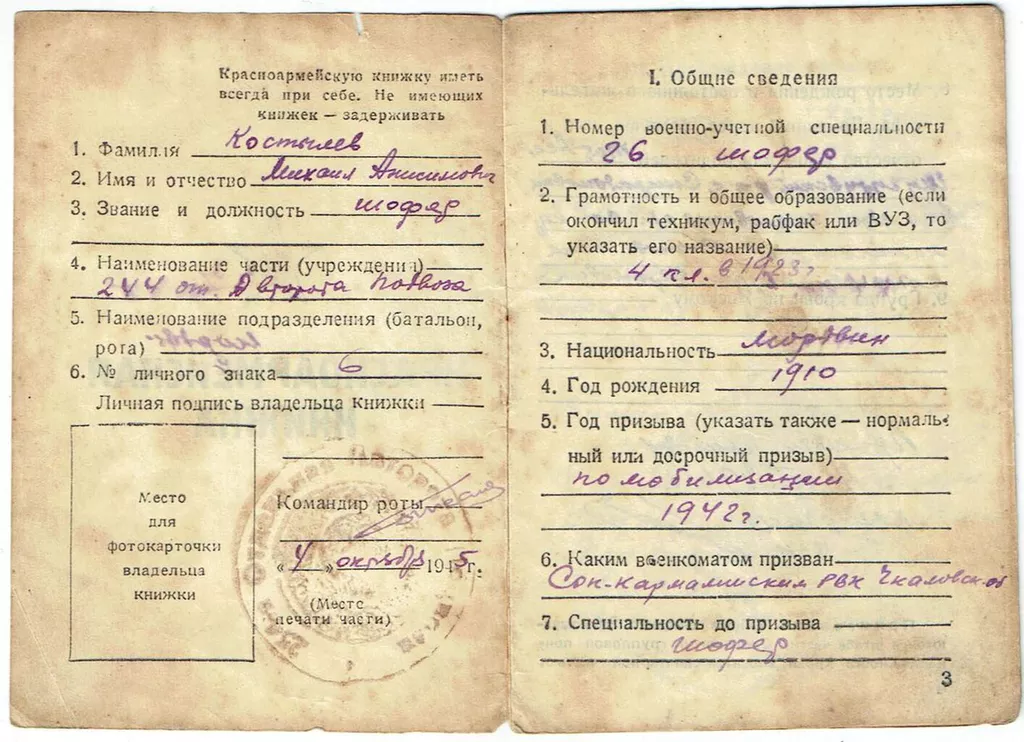 Красноармейскую книжку иметь
всегда при себе. Не имеющих
книжек — задерживать
1. Фамилия Костылев
2. Имя и отчество Михаил Анисимович
3. Звание и должность шофер
4. Наименование части (учреждения)
244 от. Автророта подвоза
5. Наименование подразделения (батальон,
рота)
6. № личного знака 6
Личная подпись владельца книжки
Место
для
фотокарточки
владельца
книжки
Командир роты
„4„ октября 1945г.
(Место
печати части)
I. Общие сведения
1. Номер военно-учетной специальности
26 шофер
2. Грамотность и общее образование (если
окончил техникум, рабфак или ВУЗ, то
указать его название)
4 кл. в 1923г
3. Национальность мордвин
4. Год рождения 1910
5. Год призыва (указать также — нормаль-
ный или досрочный призыв)
по мобилизации
1942г.
6. Каким военкоматом призван
Сок-Кармалинским РВК Чкаловской
7. Специальность до призыва
шофер
3